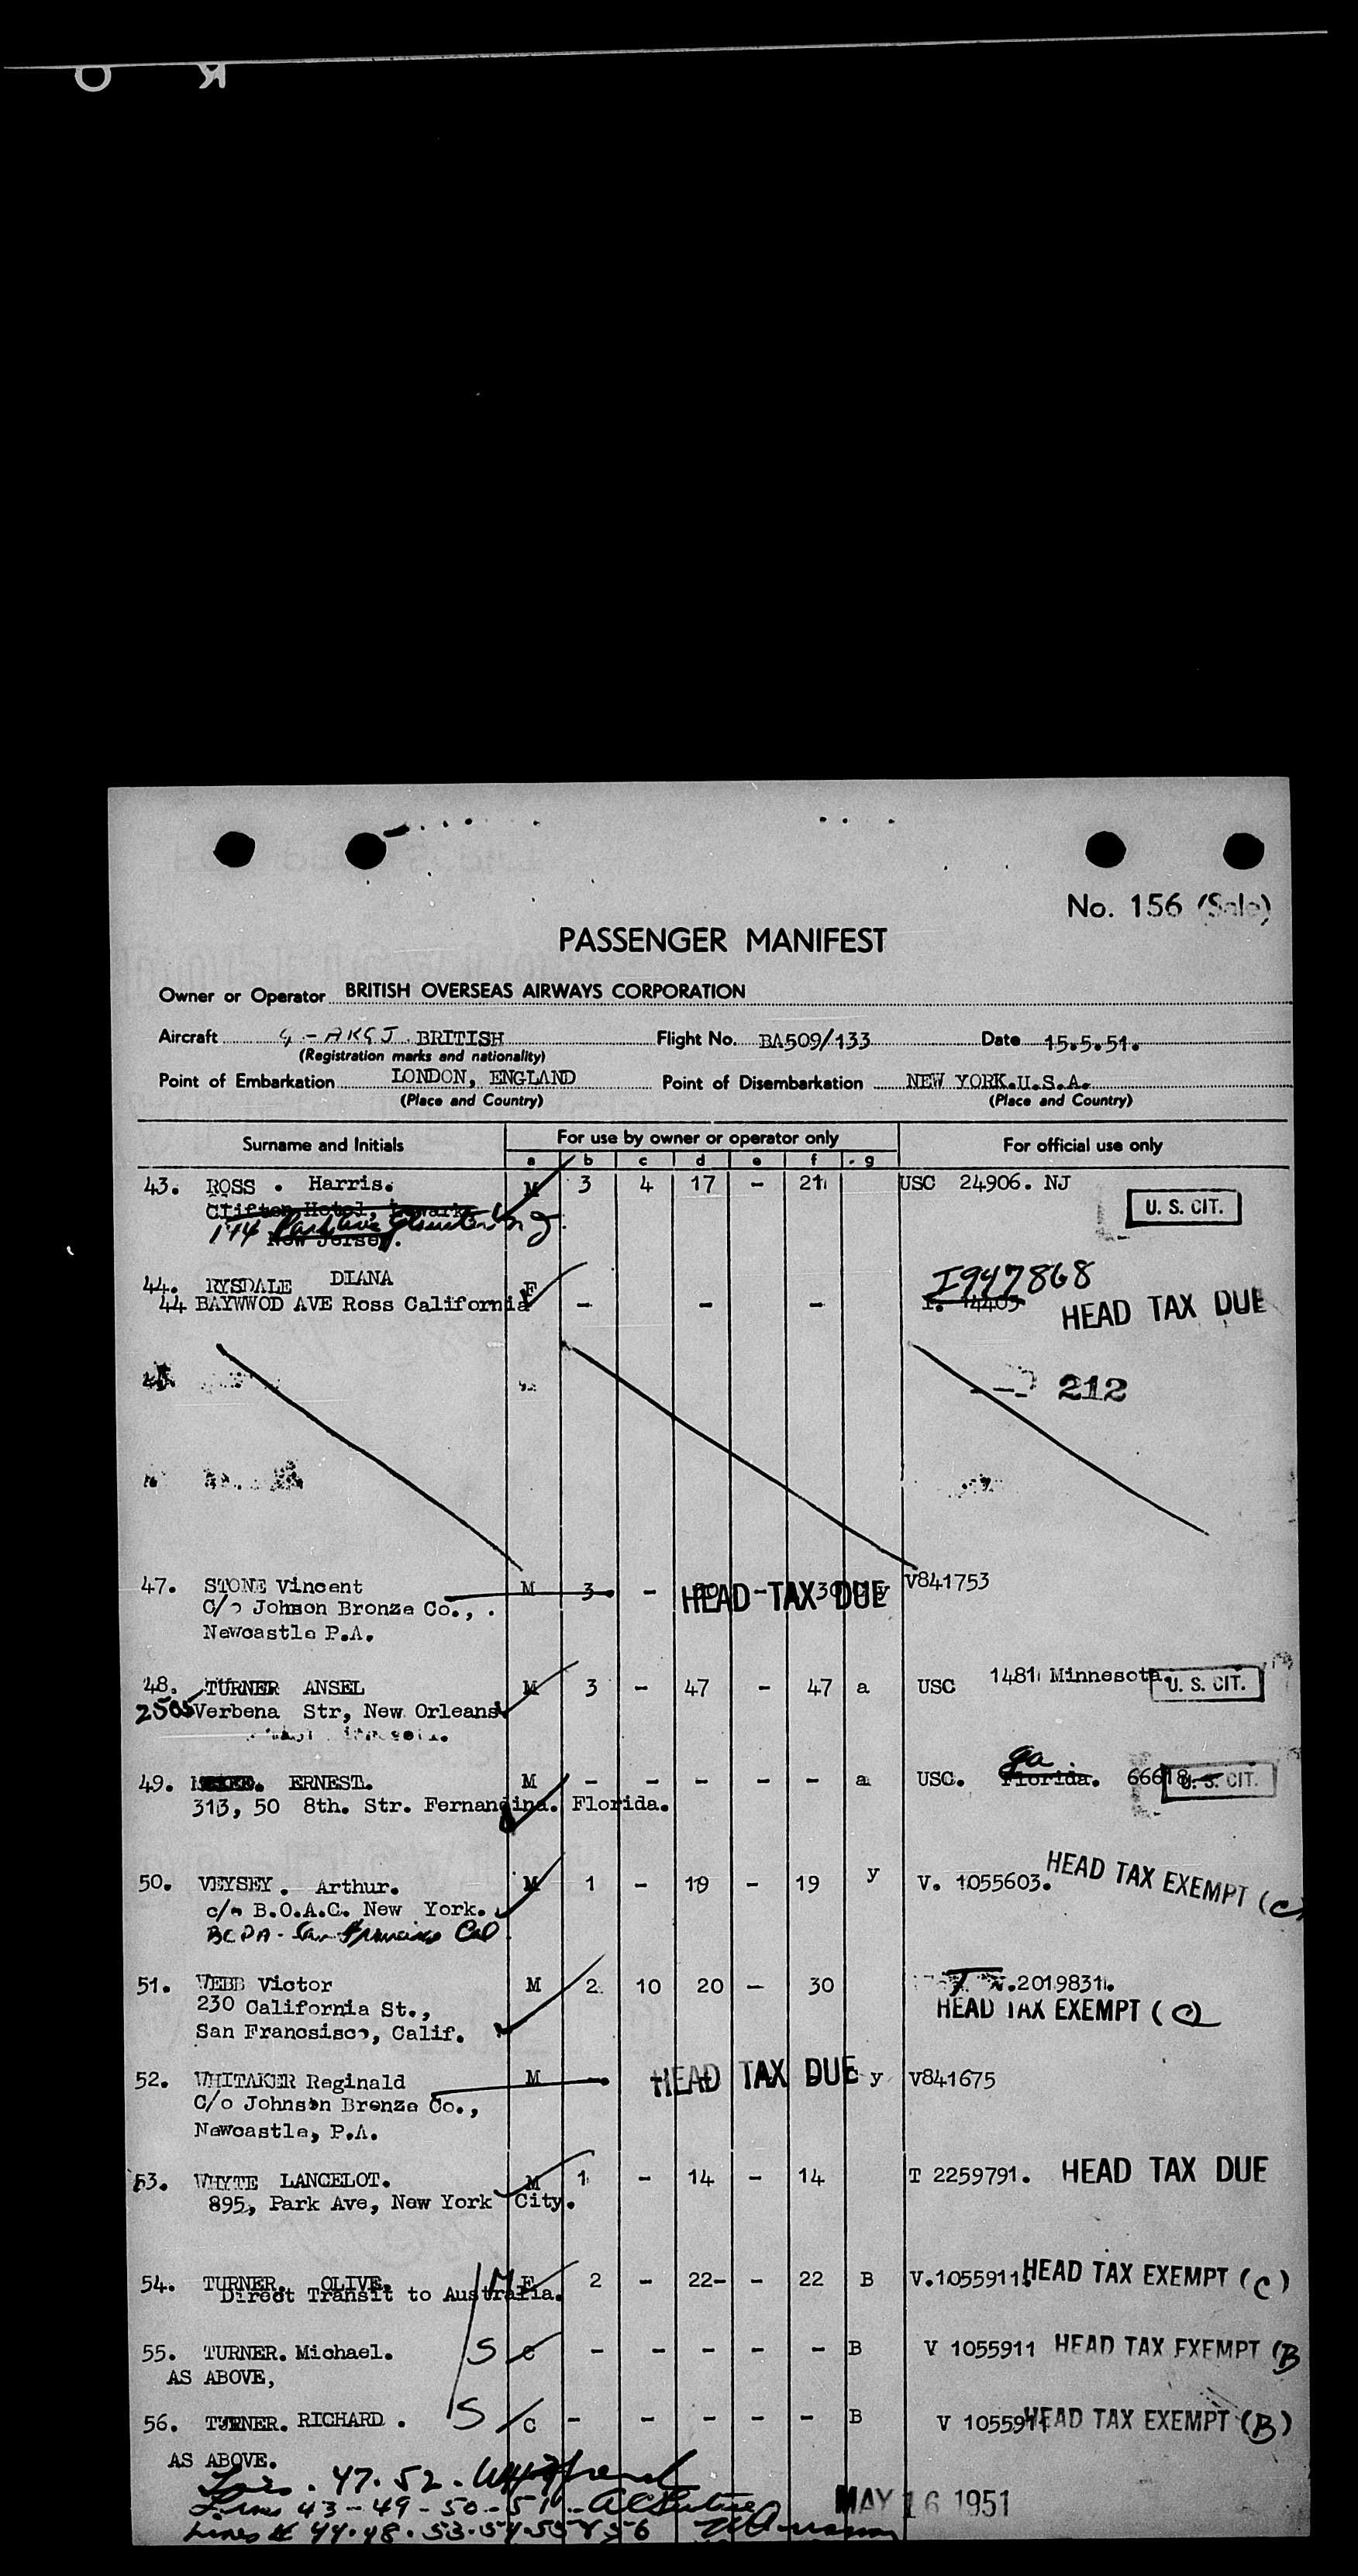 No. 156 (Sale)
PASSENGER MANIFEST
Owner or Operator BRITISH OVERSEAS AIRWAYS CORPORATION
Aircraft G-AKGJ BRITISH Flight No. BA509/133 Date 15.5.51.
(Registration marks and nationality)
Point of Embarkation LONDON, ENGLAND Point of Disembarkation NEW YORK.U.S.A.
(Place and Country) (Place and Country)
Surname and Initials For use by owner or operator only For official use only
a b c d e f g
43. ROSS . Harris. M 3 4 17 - 21 USC 24906. NJ
U. S. CIT.
Clifton Hotel, Newark
144 Park Ave N.J.
New Jersey.
44. RYSDALE DIANA F I947868
44 BAYWWOD AVE Ross California - - - I. 14403 HEAD TAX DUE
212
47. STONE Vincent M 3 - HEAD TAX DUE V841753
C/o Johnson Bronze Co., .
Newcastle P.A.
48. TURNER ANSEL M 3 - 47 - 47 a USC 1481 Minnesota U. S. CIT.
2505 Verbena Str, New Orleans
49. ERNEST. M - - - - - a USC. Ga. Florida. 66618 U. S. CIT.
313, 50 8th. Str. Fernandina. Florida.
50. VEYSEY . Arthur. M 1 - 19 - 19 y V. 1055603. HEAD TAX EXEMPT (C)
c/o B.O.A.C. New York.
BCPA - San Francisco Cal
51. WEBB Victor M 2 10 20 - 30 2019831.
230 California St., HEAD TAX EXEMPT (C)
San Francsisco, Calif.
52. WHITAKER Reginald M HEAD TAX DUE y V841675
C/o Johnson Bronze Co.,
Newcastle, P.A.
53. WHYTE LANCELOT. M 1 - 14 - 14 T 2259791. HEAD TAX DUE
895, Park Ave, New York City.
54. TURNER. OLIVE. M F 2 - 22- - 22 B V.1055911. HEAD TAX EXEMPT (C)
Direct Transit to Australia.
55. TURNER. Michael. S C - - - - - B V 1055911 HEAD TAX EXEMPT (B
AS ABOVE,
56. TURNER. RICHARD . S C - - - - - B V 1055911 HEAD TAX EXEMPT (B)
AS ABOVE.
47.52.
Lines 43-49-50-51
MAY 16 1951
Lines # 44.48.53.54.55 & 56